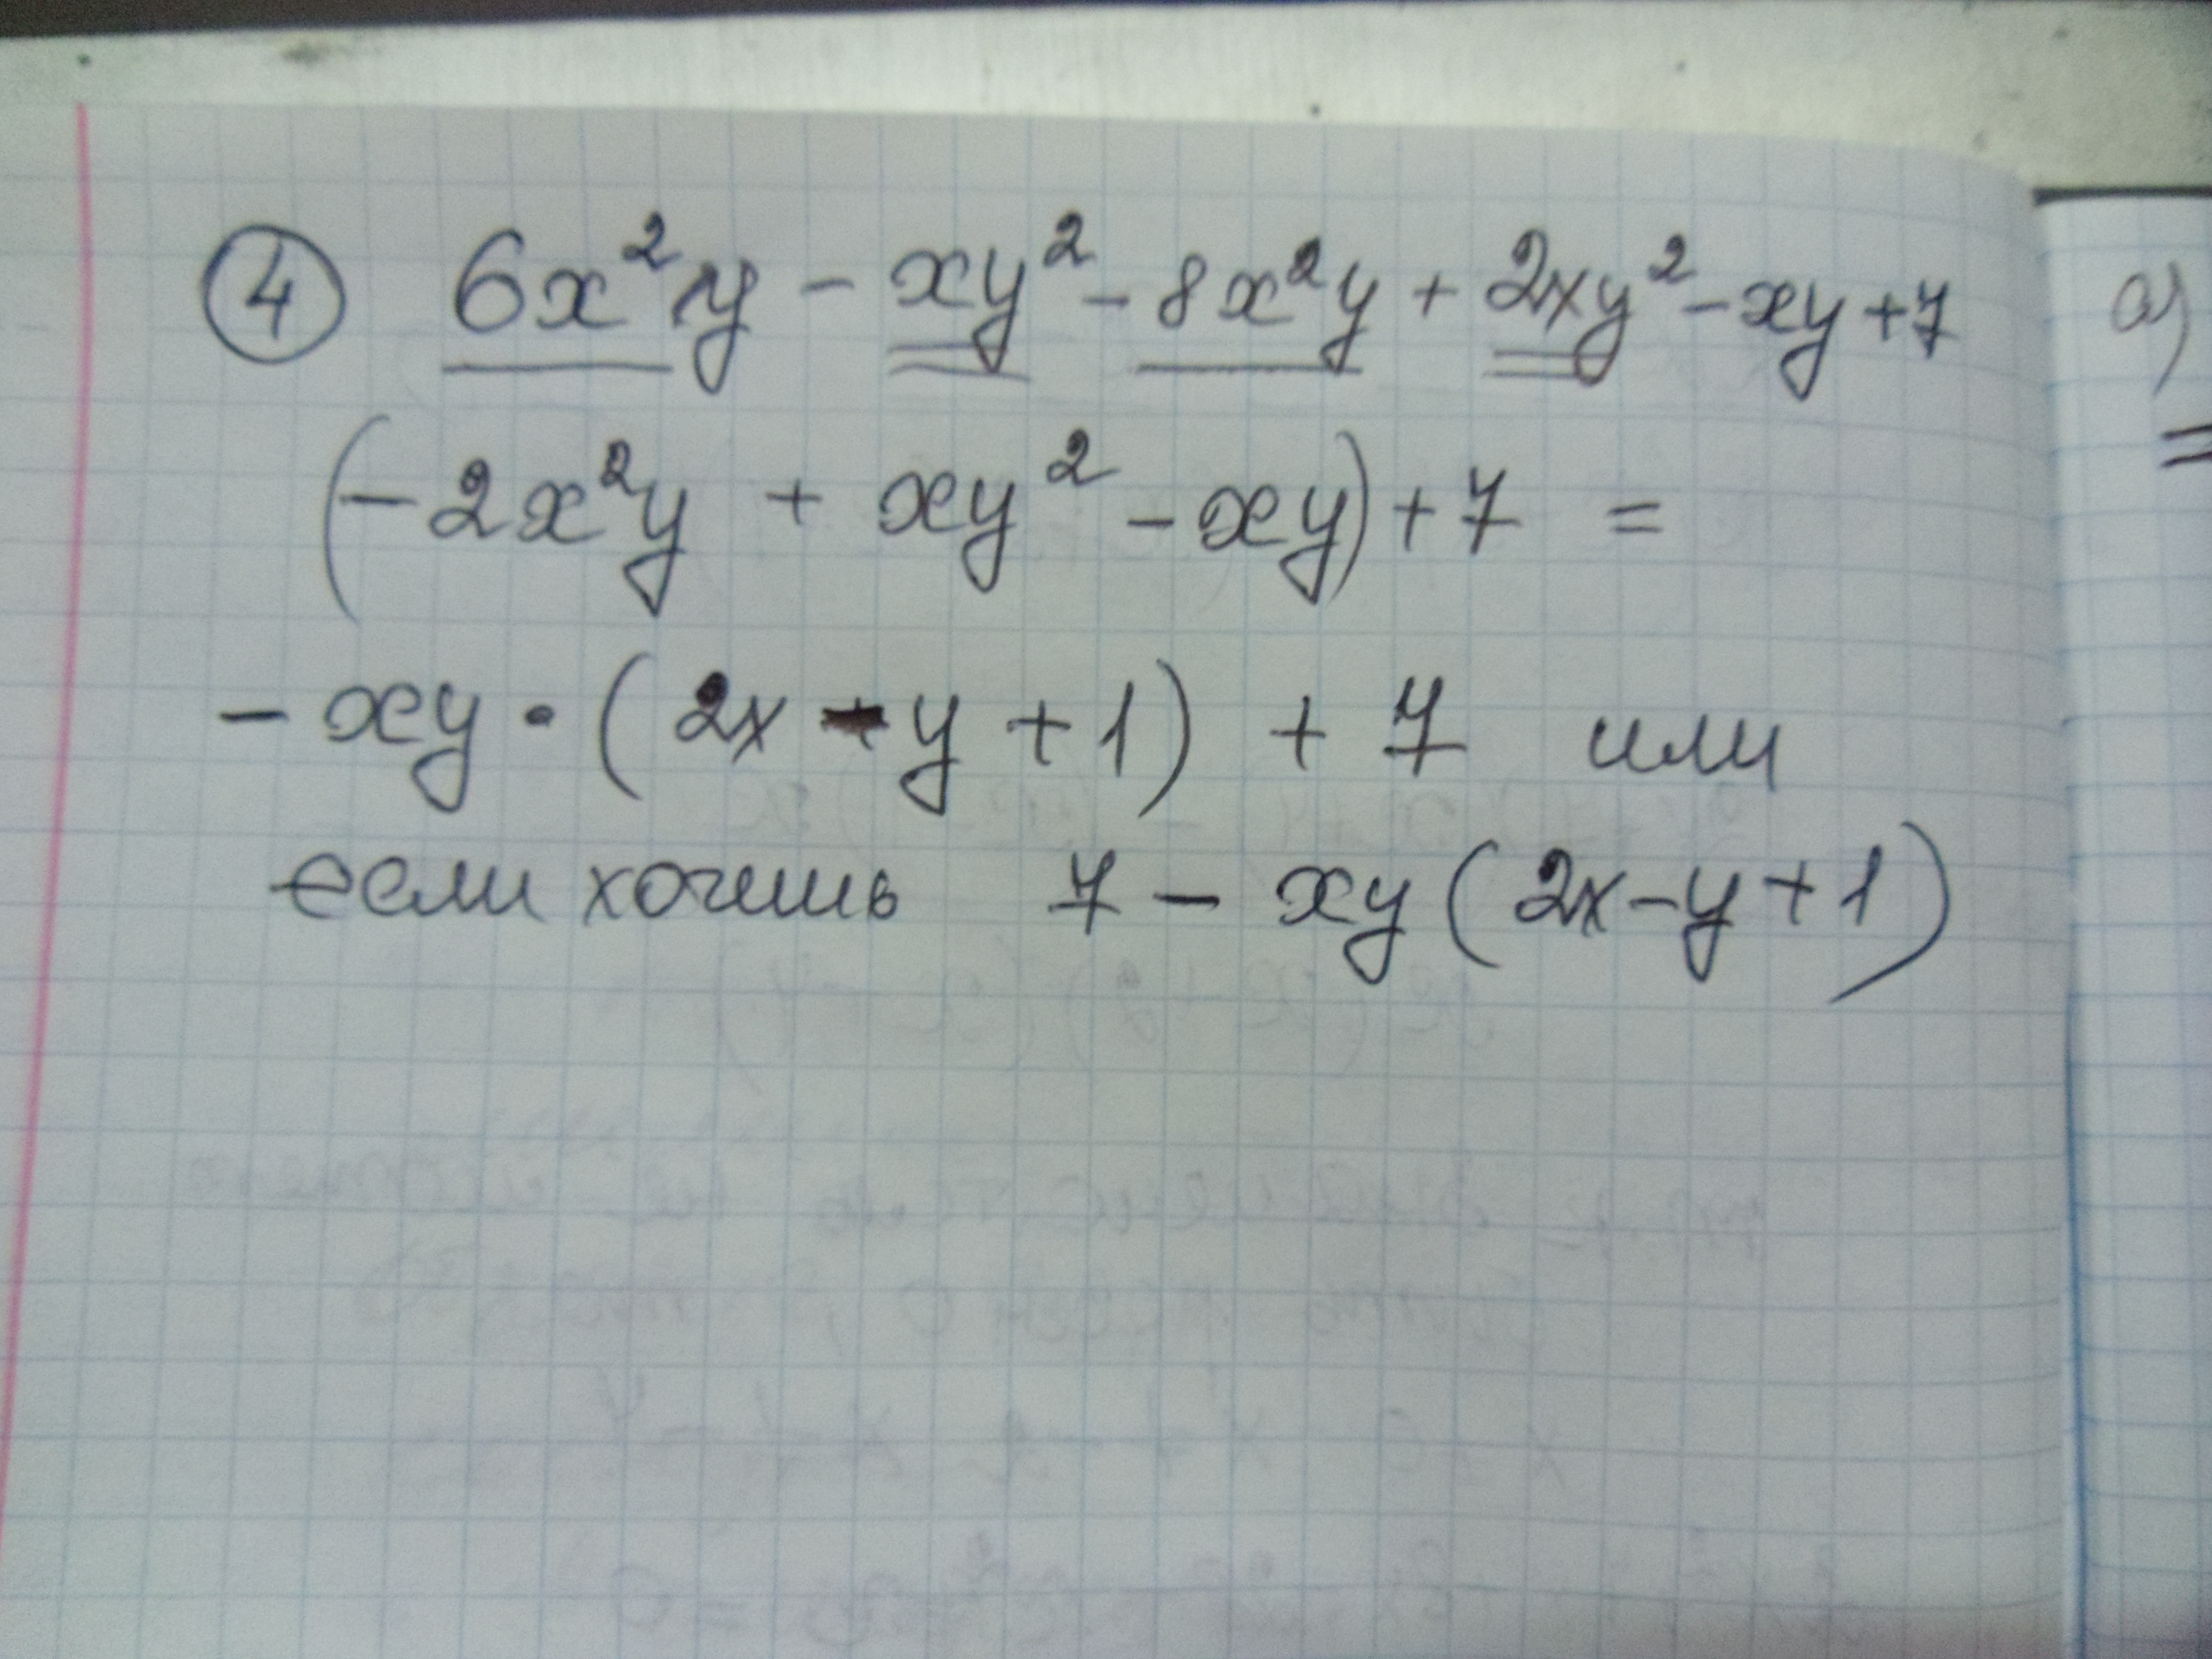 ④ 6x²y - xy² - 8x²y + 2xy² - xy + 7
(-2x²y + xy² - xy) + 7 =
-xy · (2x - y + 1) + 7 или
если хочешь 7 - xy(2x - y + 1)
а)
=